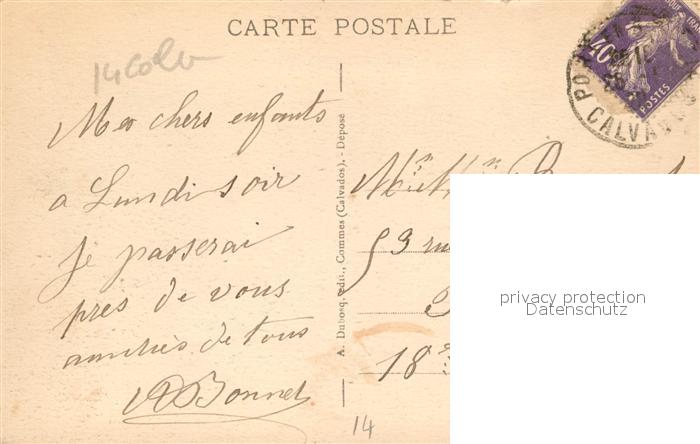 CARTE POSTALE
14 Calv
Mes chers enfants
a Lundi soir
Je passerai
près de vous
amitiés de tous
Bonnet
A. Dubosq, édit., Commes (Calvados). - Déposé
53 rue
18e
14
40
POSTES
PO
CALVADOS
privacy protection
Datenschutz